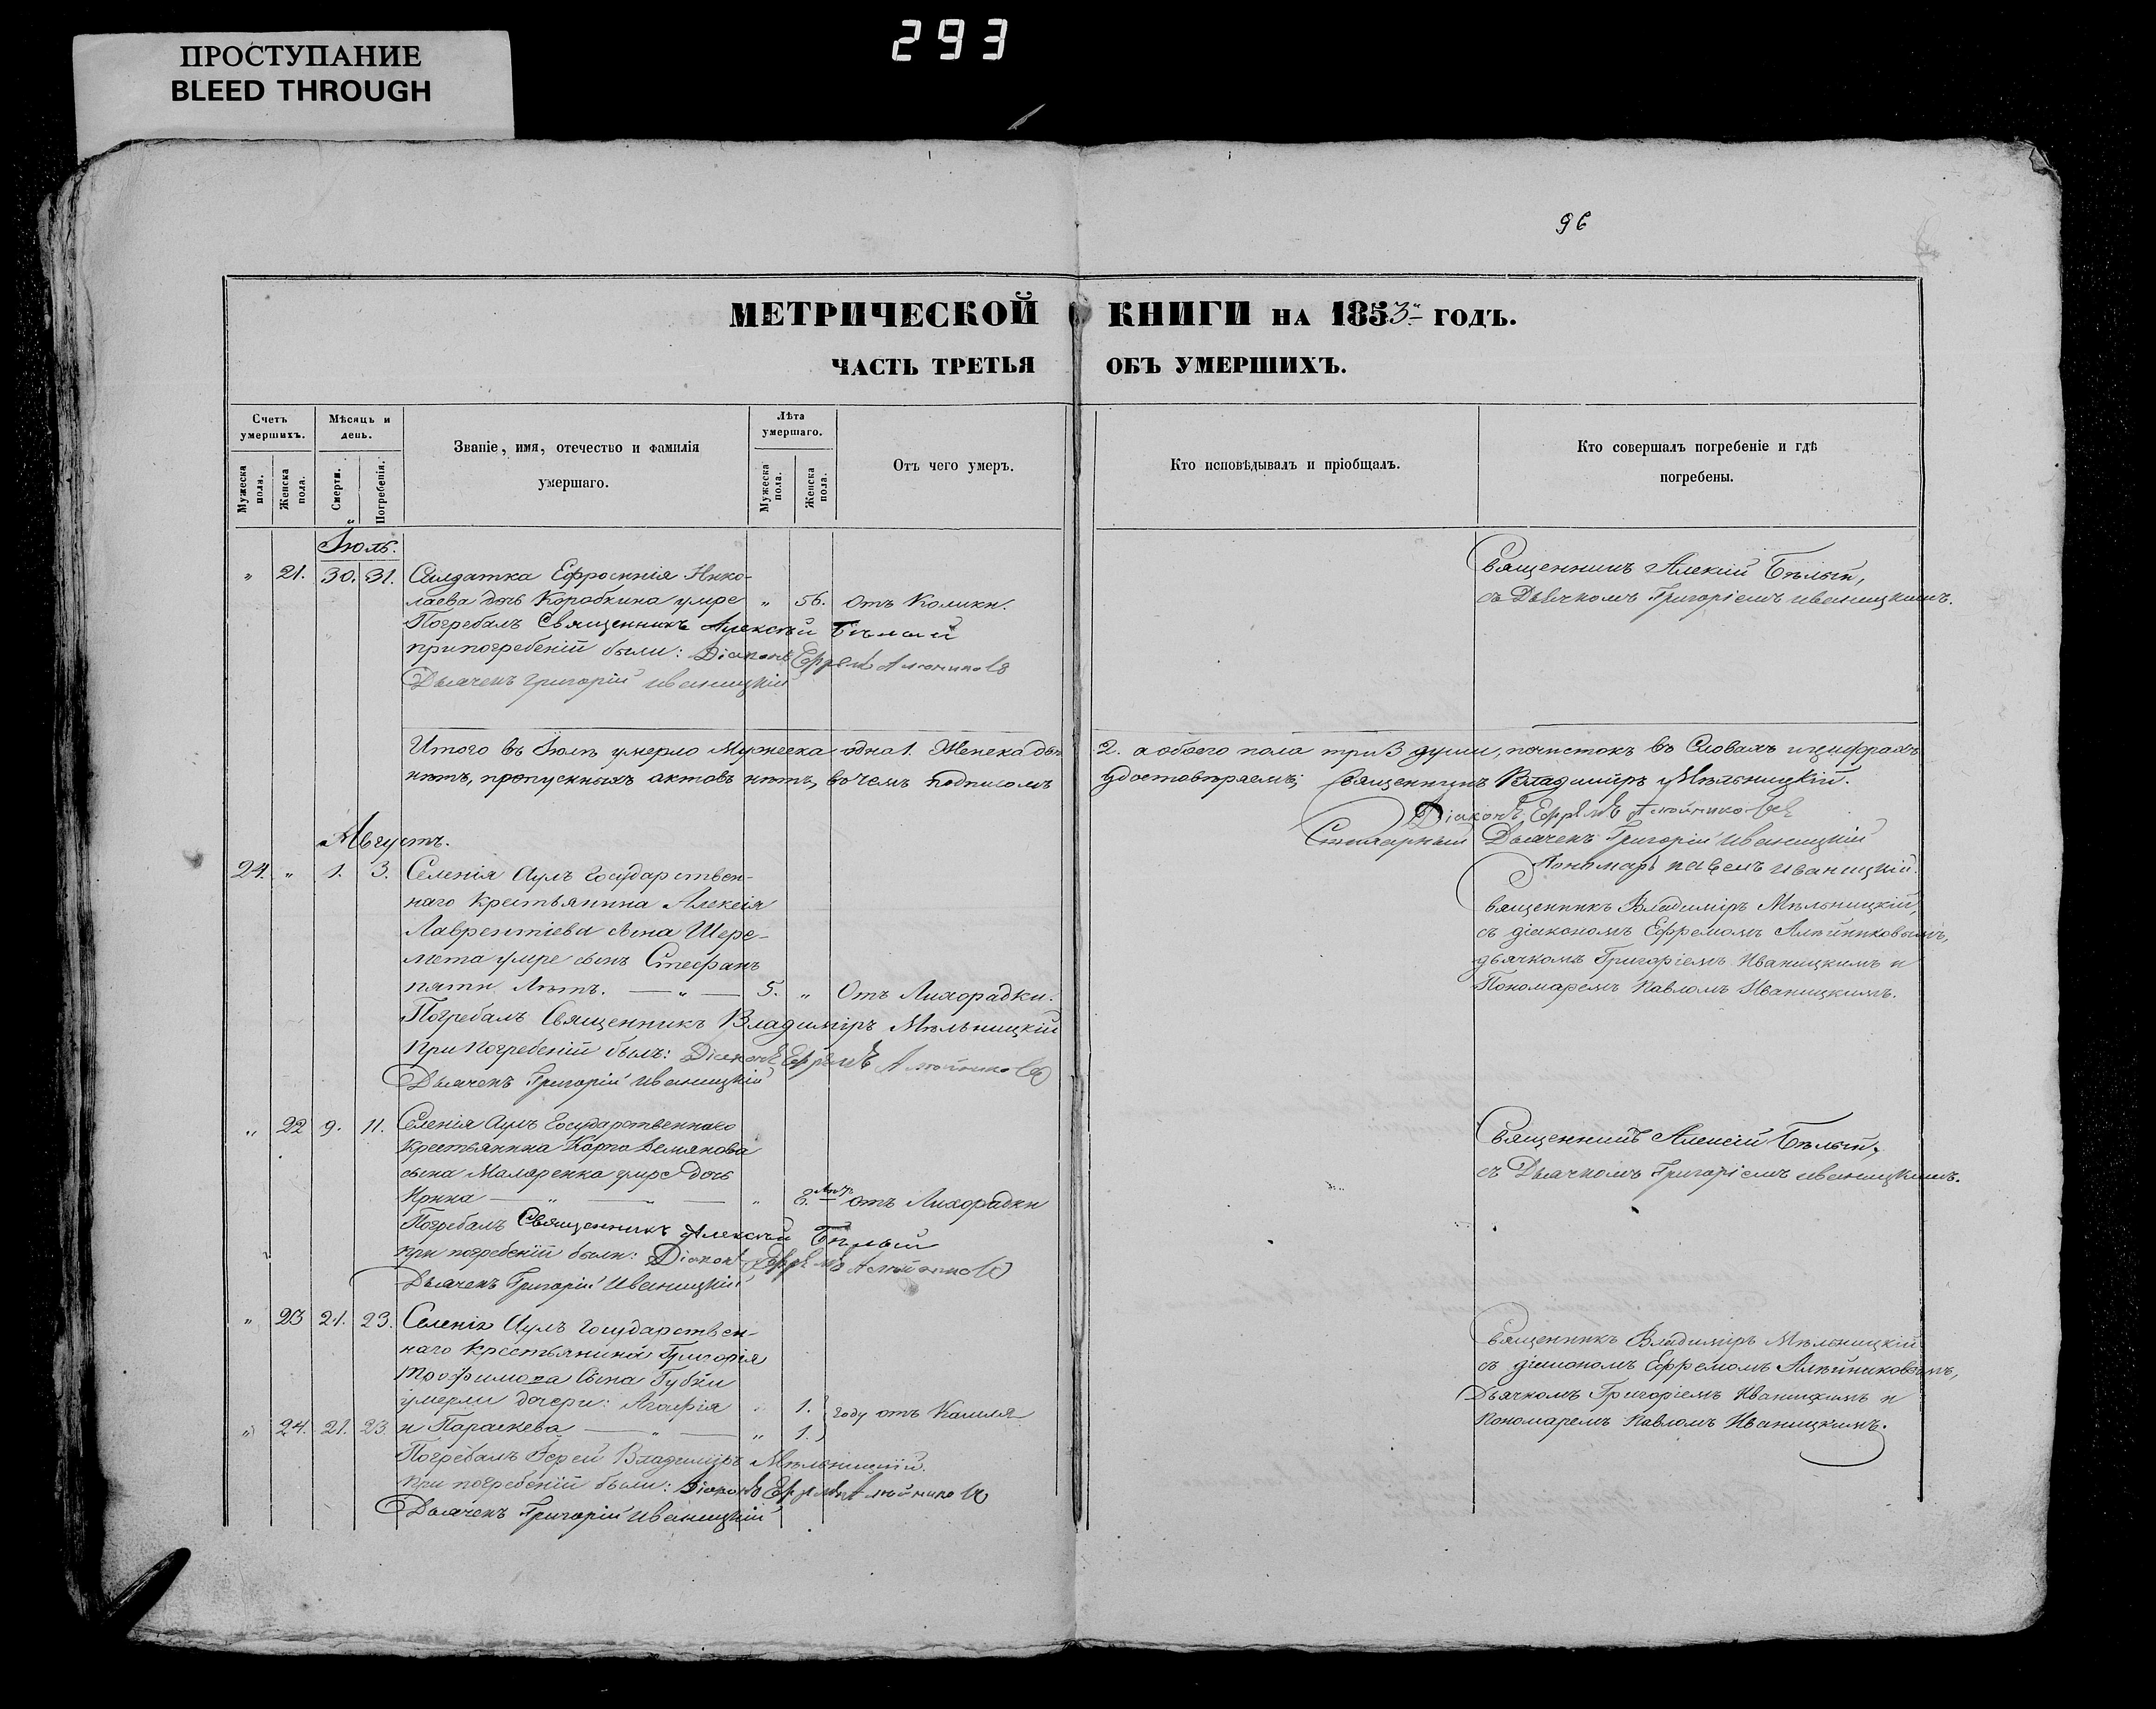 ПРОСТУПАНИЕ
BLEED THROUGH
293
96
МЕТРИЧЕСКОЙ КНИГИ НА 1853й ГОДЪ.
ЧАСТЬ ТРЕТЬЯ ОБЪ УМЕРШИХЪ.
Счетъ умершихъ.
Мужеска пола.
Женска пола.
Мѣсяцъ и день.
Смерти.
Погребенія.
Званіе, имя, отечество и фамилія умершаго.
Лѣта умершаго.
Мужеска пола.
Женска пола.
Отъ чего умеръ.
Кто исповѣдывалъ и пріобщалъ.
Кто совершалъ погребеніе и гдѣ погребены.
Іюль.
" 21. 30. 31. Салдатка Ефросинія Нико-
лаева дочь Коробкина умре " 56. отъ Колики.
Погребалъ Священникъ Алексѣй Бѣлый
при погребеніи были: Діаконъ Ефремъ
Дьячекъ Григорій Иваницкій
Священникъ Алексій Бѣлый,
съ Дьячкомъ Григоріемъ Иваницкимъ.
Итого въ Іюлѣ умерло Мужеска одна 1. Женска двѣ 2. а обоего пола три 3 души, почистокъ въ Словахъ и цифрахъ
нѣтъ, пропускныхъ актовъ нѣтъ, въ чемъ подписомъ удостовѣряемъ; Священникъ Владиміръ Мѣльницкій.
Діаконъ Ефремъ
Дьячекъ Григорій Иваницкій
Пономарь Павелъ Иваницкій.
Августъ.
24. " 1. 3. Селенія Аулъ Государствен-
наго Крестьянина Алексія
Лаврентіева сына Шере-
мета умре сынъ Стефанъ
пяти Лѣтъ. — " — 5. " Отъ Лихорадки.
Погребалъ Священникъ Владиміръ Мѣльницкій
При Погребеніи былъ: Діаконъ Ефремъ
Дьячекъ Григорій Иваницкій
Священникъ Владиміръ Мѣльницкій,
съ діакономъ Ефремомъ Алѣйниковымъ,
дьячкомъ Григоріемъ Иваницкимъ и
Пономаремъ Павломъ Иваницкимъ.
" 22 9. 11. Селенія Аулъ Государственнаго
Крестьянина Карпа Демянова
сына Маляренка умре дочь
Ирина — " — " — " 2. лѣтъ отъ Лихорадки
Погребалъ Священникъ Алексѣй Бѣлый
при погребеніи были: Діаконъ Ефремъ
Дьячекъ Григорій Иваницкій
Священникъ Алексій Бѣлый,
съ Дьячкомъ Григоріемъ Иваницкимъ.
" 23 21. 23. Селенія Аулъ Государствен-
наго Крестьянина Григорія
Трофимова Сына Губки
умерли дочери: Агафія 1. году отъ Кашля
" 24. 21. 23. и Параскева — " — " 1.
Погребалъ Іерей Владиміръ Мѣльницкій.
при погребеніи были: Діаконъ Ефремъ
Дьячекъ Григорій Иваницкій
Священникъ Владиміръ Мѣльницкій
съ діакономъ Ефремомъ Алѣйниковымъ,
Дьячкомъ Григоріемъ Иваницкимъ и
Пономаремъ Павломъ Иваницкимъ.